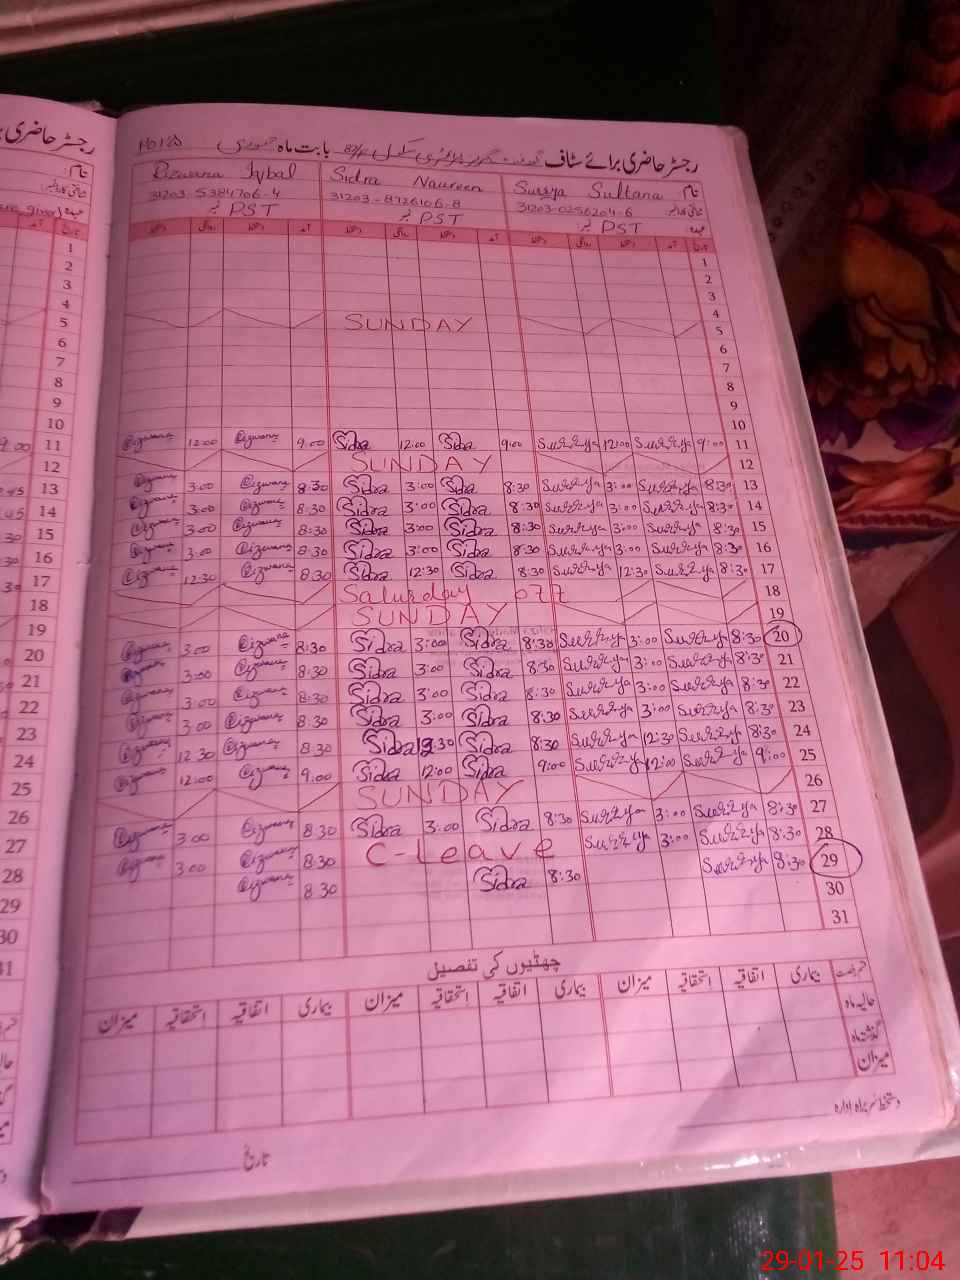 رجسٹر حاضری برائے سٹاف گورنمنٹ گرلز پرائمری سکول بابت ماہ جنوری
نام: Surrya Sultana Sidra Naureen Rizwana Iqbal
شناختی کارڈ نمبر 31203-0256204-6 31203-8726106-8 31203-5384706-4
عہدہ: PST نمبر PST نمبر PST نمبر
تاریخ آمد دستخط روانگی دستخط آمد دستخط روانگی دستخط آمد دستخط روانگی دستخط
1
2
3
4
SUNDAY 5
6
7
8
9
10
Rizwana 12:00 Rizwana 9:00 Sidra 12:00 Sidra 9:00 Surrya 12:00 Surrya 9:00 11
SUNDAY 12
Rizwana 3:00 Rizwana 8:30 Sidra 3:00 Sidra 8:30 Surrya 3:00 Surrya 8:30 13
Rizwana 3:00 Rizwana 8:30 Sidra 3:00 Sidra 8:30 Surrya 3:00 Surrya 8:30 14
Rizwana 3:00 Rizwana 8:30 Sidra 3:00 Sidra 8:30 Surrya 3:00 Surrya 8:30 15
Rizwana 3:00 Rizwana 8:30 Sidra 3:00 Sidra 8:30 Surrya 3:00 Surrya 8:30 16
Rizwana 12:30 Rizwana 8:30 Sidra 12:30 Sidra 8:30 Surrya 12:30 Surrya 8:30 17
Saturday off 18
SUNDAY 19
Rizwana 3:00 Rizwana 8:30 Sidra 3:00 Sidra 8:30 Surrya 3:00 Surrya 8:30 20
Rizwana 3:00 Rizwana 8:30 Sidra 3:00 Sidra 8:30 Surrya 3:00 Surrya 8:30 21
Rizwana 3:00 Rizwana 8:30 Sidra 3:00 Sidra 8:30 Surrya 3:00 Surrya 8:30 22
Rizwana 3:00 Rizwana 8:30 Sidra 3:00 Sidra 8:30 Surrya 3:00 Surrya 8:30 23
Rizwana 12:30 Rizwana 8:30 Sidra 12:30 Sidra 8:30 Surrya 12:30 Surrya 8:30 24
Rizwana 12:00 Rizwana 9:00 Sidra 12:00 Sidra 9:00 Surrya 12:00 Surrya 9:00 25
SUNDAY 26
Rizwana 3:00 Rizwana 8:30 Sidra 3:00 Sidra 8:30 Surrya 3:00 Surrya 8:30 27
Rizwana 3:00 Rizwana 8:30 C-Leave Surrya 3:00 Surrya 8:30 28
Rizwana 8:30 Sidra 8:30 Surrya 8:30 29
30
31
چھٹیوں کی تفصیل
قسم رخصت بیماری اتفاقیہ استحقاقیہ میزان بیماری اتفاقیہ استحقاقیہ میزان بیماری اتفاقیہ استحقاقیہ میزان
حالیہ ماہ
گذشتہ ماہ
میزان
دستخط سربراہ ادارہ
تاریخ
29-01-25 11:04